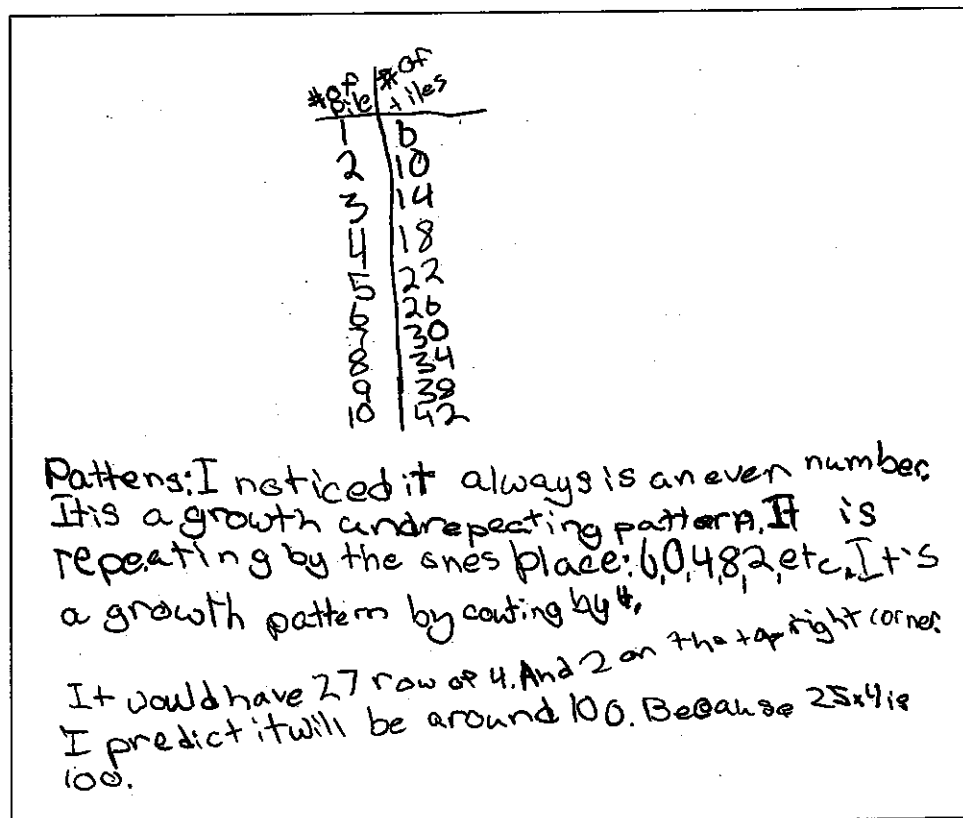 # of Pile | # of tiles
1 | 6
2 | 10
3 | 14
4 | 18
5 | 22
6 | 26
7 | 30
8 | 34
9 | 38
10 | 42
Pattens: I noticed it always is an even number.
It is a growth and repeating pattern. It is
repeating by the ones place: 6,0,4,8,2, etc. It's
a growth pattern by couting by 4.
It would have 27 row of 4. And 2 on the top right corner.
I predict it will be around 100. Because 25x4 is
100.